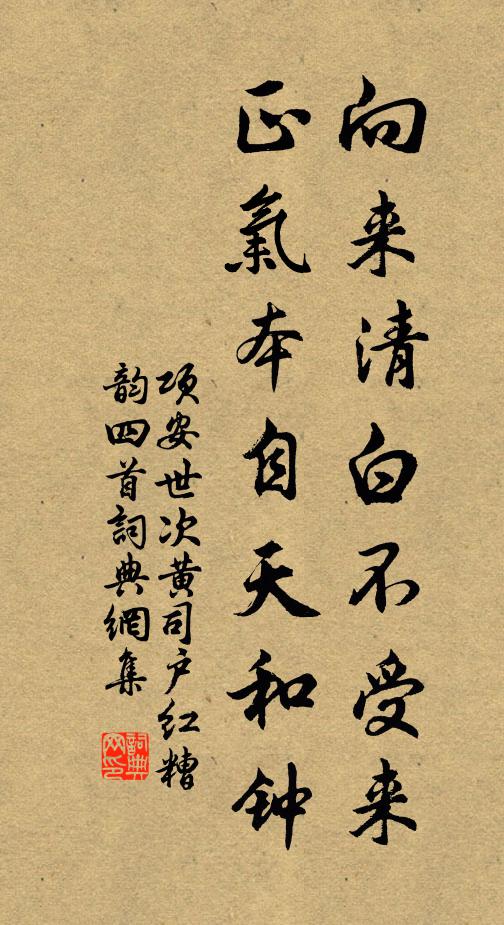 向来清白不受来
正氣本自天和钟
项安世次黄司户红糟
韵四首詞典網集
詞典网印